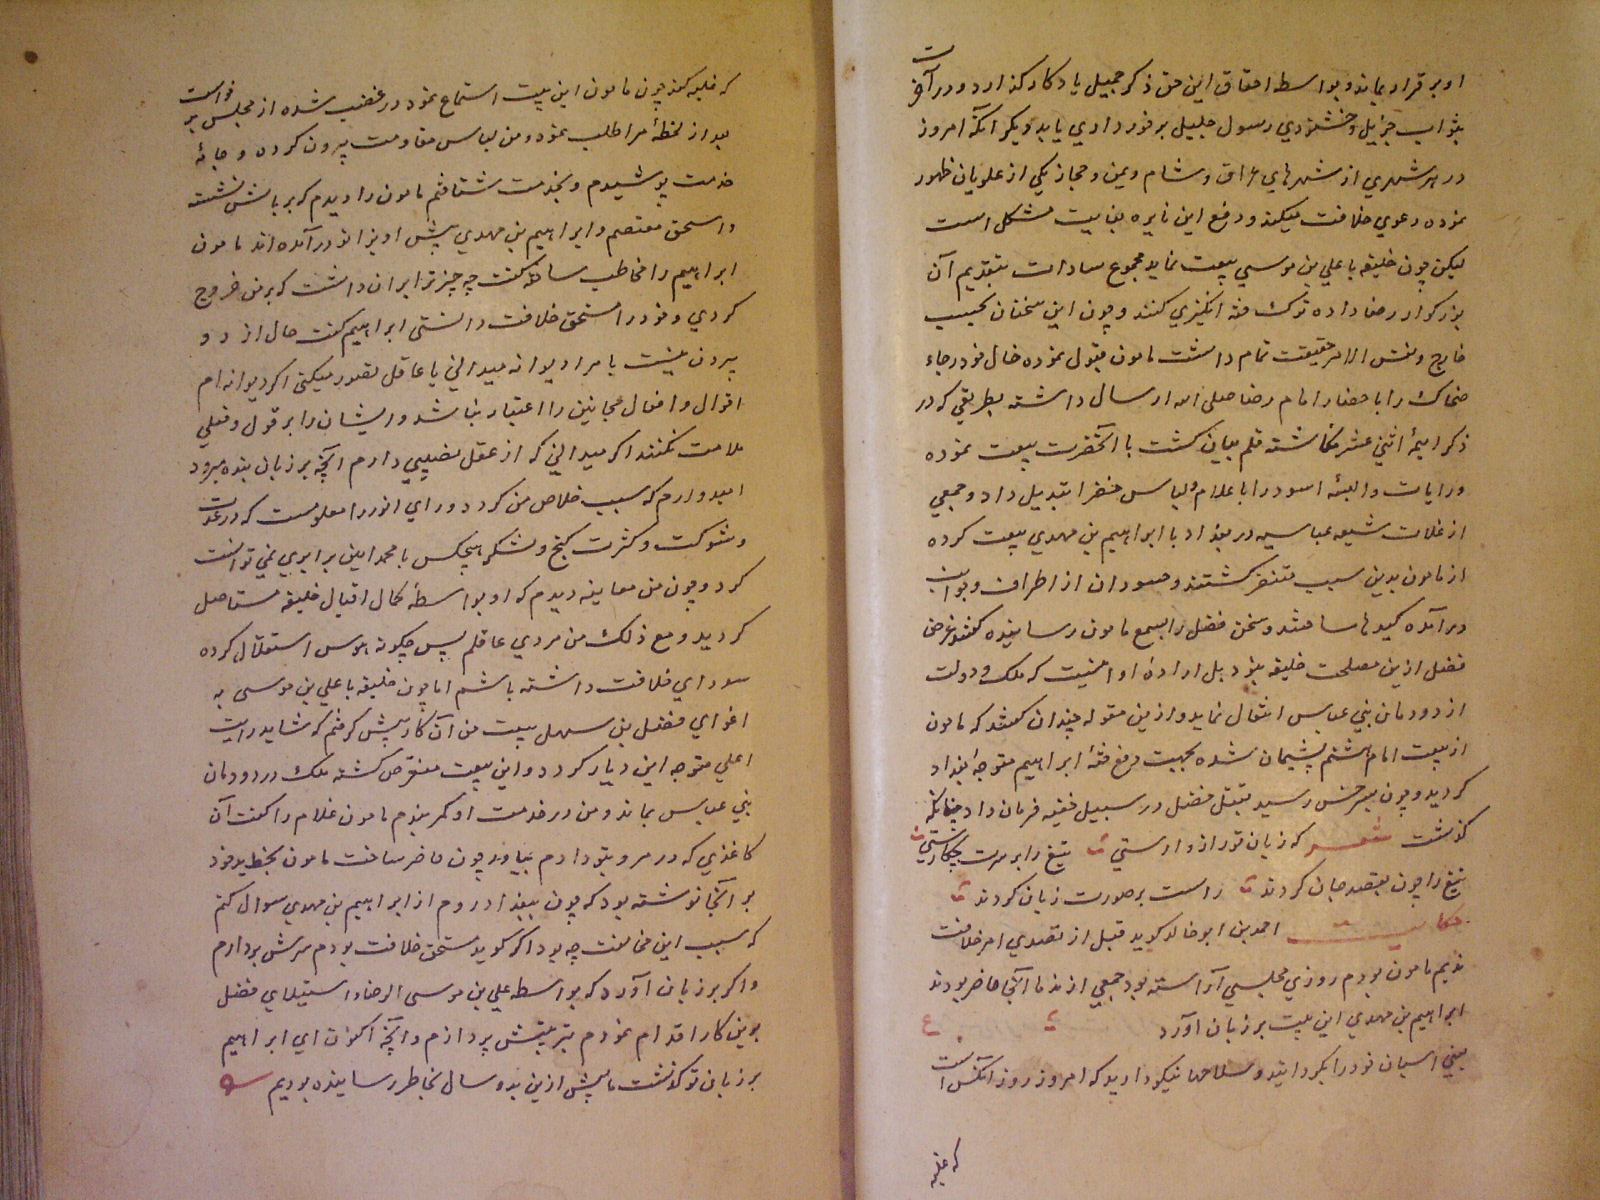 او برقرار بماند و بواسطه احقاق این حق ذکر جمیل یادکار کذارد و در آخرت
بثواب جزیل و خشنودی رسول جلیل برخورداری یابد دیکر آنکه امروز
در هر شهری از شهرهای عراق و شام و یمن و حجاز یکی از علویان ظهور
نموده دعوی خلافت میکند و دفع این نایره بغایت مشکل است
لیکن چون خلیفه با علی بن موسی بیعت نماید مجموع سادات بتقدیم آن
بزرکوار رضا داده ترک فتنه انکیزی کنند و چون این سخنان بحسب
خارج و نفس الامر حقیقت تمام داشت مامون قبول نموده خال خود رجاء
ضحاک را با حضار امام رضا صلی الله ارسال داشته بطریقی که در
ذکر ایمهٔ اثنی عشر نکاشته قلم بیان کشت با آنحضرت بیعت نموده
و رایات و البسهٔ اسود را با علام و لباس خضرا تبدیل داد و جمعی
از غلات شیعه عباسیه در بغداد با ابراهیم بن مهدی بیعت کرده
از مامون بدین سبب متنفر کشتند و حسودان از اطراف و جوانب
درآمده کیدها ساختند و سخن فضل را بسمع مامون رسانیده کفتند غرض
فضل ازین مصلحت خلیفه نبود بل ارادهٔ او آنست که ملک و دولت
از دودمان بنی عباس انتقال نماید و ازین مقوله چندان کفتند که مامون
از بیعت امام هشتم پشیمان شده بجهت دفع فتنهٔ ابراهیم متوجه بغداد
کردید و چون بسرخس رسید بقتل فضل در سبیل خفیه فرمان داد چنانکه
کذشت شعر که زبان تو راز دارستی تیغ را بر سرت چکارستی
تیغ را چون بقصد جان کردند راست بر صورت زبان کردند
حکایت احمد بن ابو خالد کوید قبل از تصدی امر خلافت
ندیم مامون بودم روزی مجلسی آراسته بود جمعی از ندما آنجا حاضر بودند
ابراهیم بن مهدی این بیت بر زبان آورد ع
یعنی اسبان خود را بکردانید و سلاحها نیکو دارید که امروز روز آنکس است
که غلبه
که غلبه کند چون مامون این بیت استماع نمود در غضب شده از مجلس برخواست
بعد از لحظهٔ مرا طلب نمود و من لباس مقاومت بیرون کرده و جامهٔ
خدمت پوشیدم و بخدمت شتافتم مامون را دیدم که بر بالش نشسته
و اسحق معتصم و ابراهیم بن مهدی پیش او بزانو در آمده اند مامون
ابراهیم را مخاطب ساخته کفت چه چیز ترا بران داشت که بر من خروج
کردی و خود را مستحق خلافت دانستی ابراهیم کفت حال از دو
بیرون نیست یا مرا دیوانه میدانی یا عاقل تصور میکنی اکر دیوانه ام
اقوال و افعال مجانین را اعتبار نباشد و ایشان را بر قول و فعلی
ملامت نکنند اکر میدانی که از عقل نصیبی دارم آنچه بر زبان بنده میرود
امیدوارم که سبب خلاص من کردد و رای انور را معلومست که در عدت
و شوکت و کثرت کنج و لشکر هیچکس با محمد امین برابری نمی توانست
کرد و چون من معاینه دیدم که او بواسطهٔ کمال اقبال خلیفه مستاصل
کردید و مع ذلک من مردی عاقلم پس چکونه هوس استقلال کرده
سودای خلافت داشته باشم اما چون خلیفه با علی بن موسی به
اغوای فضل بن سهل بیعت من آن کار پیش کرفتم که شاید رایت
اعلی متوجه این دیار کردد و این بیعت منقرض کشته ملک در دودمان
بنی عباس بماند و من در خدمت او کمر بندم مامون غلام را کفت آن
کاغذی که در مرو بتو دادم بیاور چون حاضر ساخت مامون بخط خود
بر آنجا نوشته بود که چون ببغداد روم از ابراهیم بن مهدی سوال کنم
که سبب این مخالفت چه بود اکر کوید مستحق خلافت بودم سرش بردارم
و اکر بر زبان آورد که بواسطه علی بن موسی الرضا و استیلای فضل
بدین کار اقدام نمودم بتربیتش پردازم و آنچه اکنون ای ابراهیم
بر زبان تو کذشت ما پیش ازین بدو سال بخاطر رسانیده بودیم